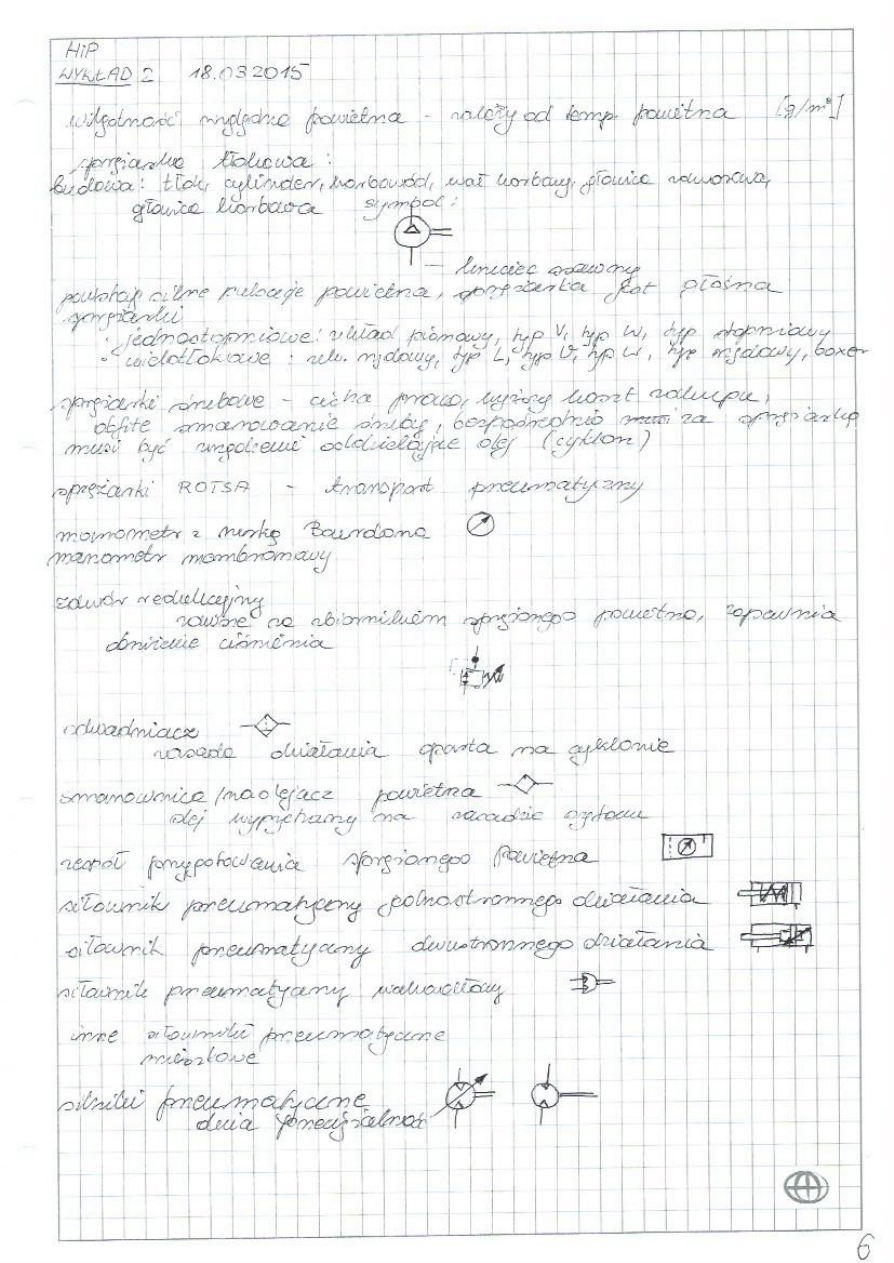 HiP
WYKŁAD 2 18.03.2015
wilgotność względna powietrza - zależy od temp. powietrza [g/m³]
sprężarka tłokowa:
budowa: tłok, cylinder, korbowód, wał korbowy, głowica zaworowa,
głowica korbowa symbol:
króciec ssawny
powstają silne pulsacje powietrza, sprężarka jest głośna
sprężarki
· jednostopniowe: układ pionowy, typ V, typ W, typ stopniowy
· wielotłokowe : rzędowy, typ L, typ V, typ W, typ rzędowy, boxer
sprężarki śrubowe - cicha praca, wyższy koszt zakupu,
obfite smarowanie śruby, bezpośrednio za sprężarką
musi być urządzenie oddzielające olej (cyklon)
sprężarki ROTSA - transport pneumatyczny
manometr z rurką Bourdona
manometr membranowy
zawór redukcyjny
zawsze za zbiornikiem sprężonego powietrza, zapewnia
obniżenie ciśnienia
odwadniacz
zasada działania oparta na cyklonie
smarownica/naolejacz powietrza
olej wypychany na zasadzie
zespół przygotowania sprężonego powietrza
siłownik pneumatyczny jednostronnego działania
siłownik pneumatyczny dwustronnego działania
siłownik pneumatyczny wahadłowy
inne siłowniki pneumatyczne
mieszkowe
silniki pneumatyczne
duża
6